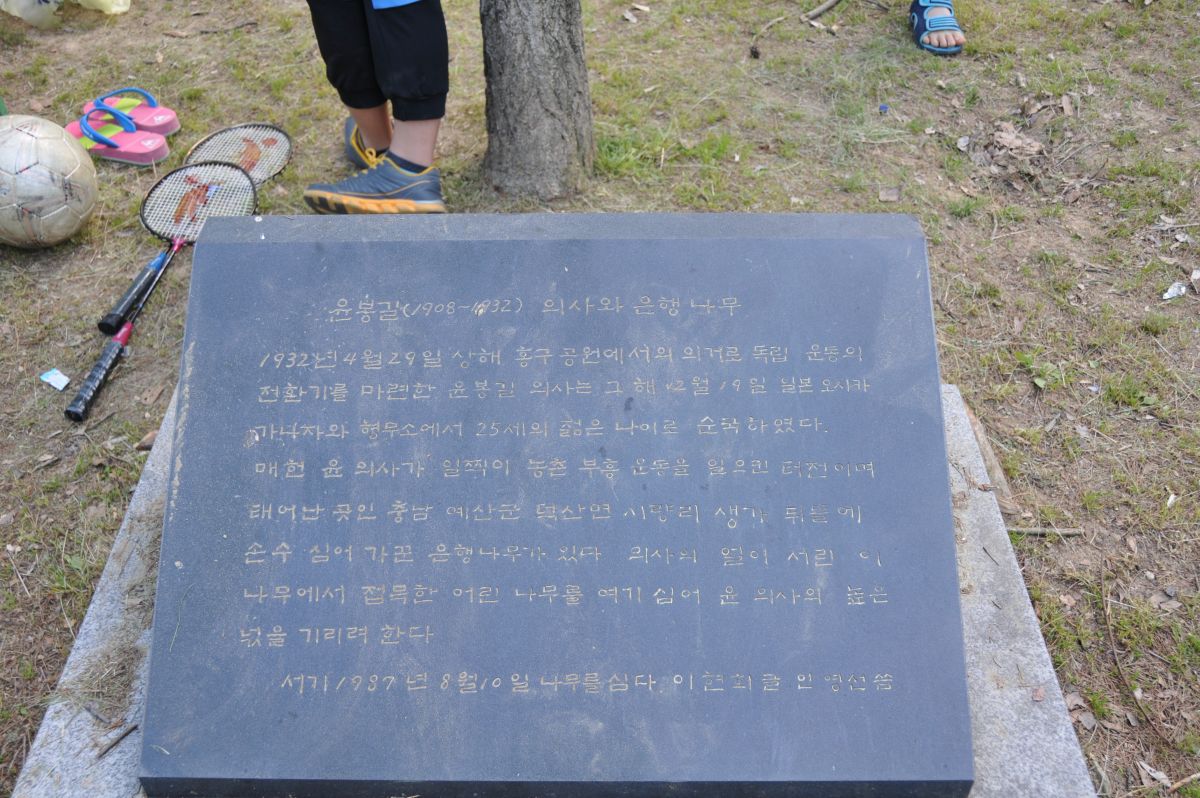 윤봉길(1908-1932) 의사와 은행나무
1932년 4월 29일 상해 홍구 공원에서의 의거로 독립 운동의
전환기를 마련한 윤봉길 의사는 그 해 12월 19일 일본 오시카
가나자와 형무소에서 25세의 젊은 나이로 순국하였다.
매헌 윤 의사가 일찍이 농촌 부흥 운동을 일으킨 터전이며
태어난 곳인 충남 예산군 덕산면 시량리 생가 뒤뜰에
손수 심어 가꾼 은행나무가 있다 의사의 얼이 서린 이
나무에서 접목한 어린 나무를 여기 심어 윤 의사의 높은
넋을 기리려 한다
서기 1987년 8월 10일 나무를 심다 이현희 글 인영선 씀